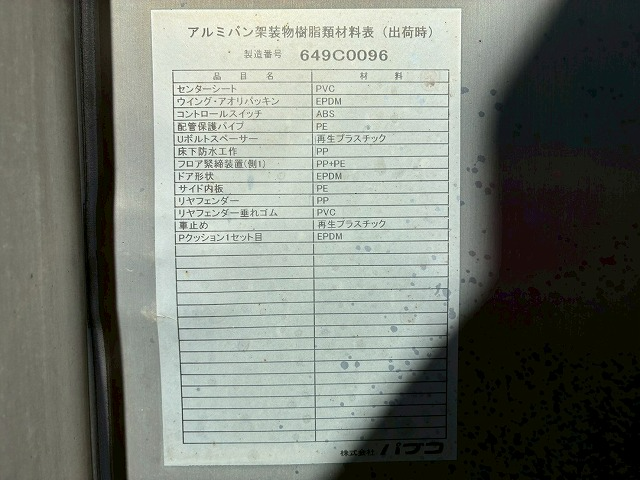 アルミバン架装物樹脂類材料表（出荷時）
製造番号 649C0096
品目名 材料
センターシート PVC
ウイング・アオリパッキン EPDM
コントロールスイッチ ABS
配管保護パイプ PE
Uボルトスペーサー 再生プラスチック
床下防水工作 PP
フロア緊締装置(側1) PP+PE
ドア形状 EPDM
サイド内板 PE
リヤフェンダー PP
リヤフェンダー垂れゴム PVC
車止め 再生プラスチック
Pクッション1セット目 EPDM
株式会社 パブコ